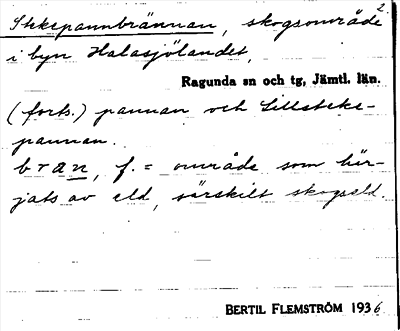 2.
Ikkepannbrännan, skogsområde
i byn Halasjölandet,
Ragunda sn och tg, Jämtl. län.
(forts.) pannan och Lillsteke-
pannan.
bran, f. = område som här-
jats av eld, särskilt skogseld.
BERTIL FLEMSTRÖM 1936